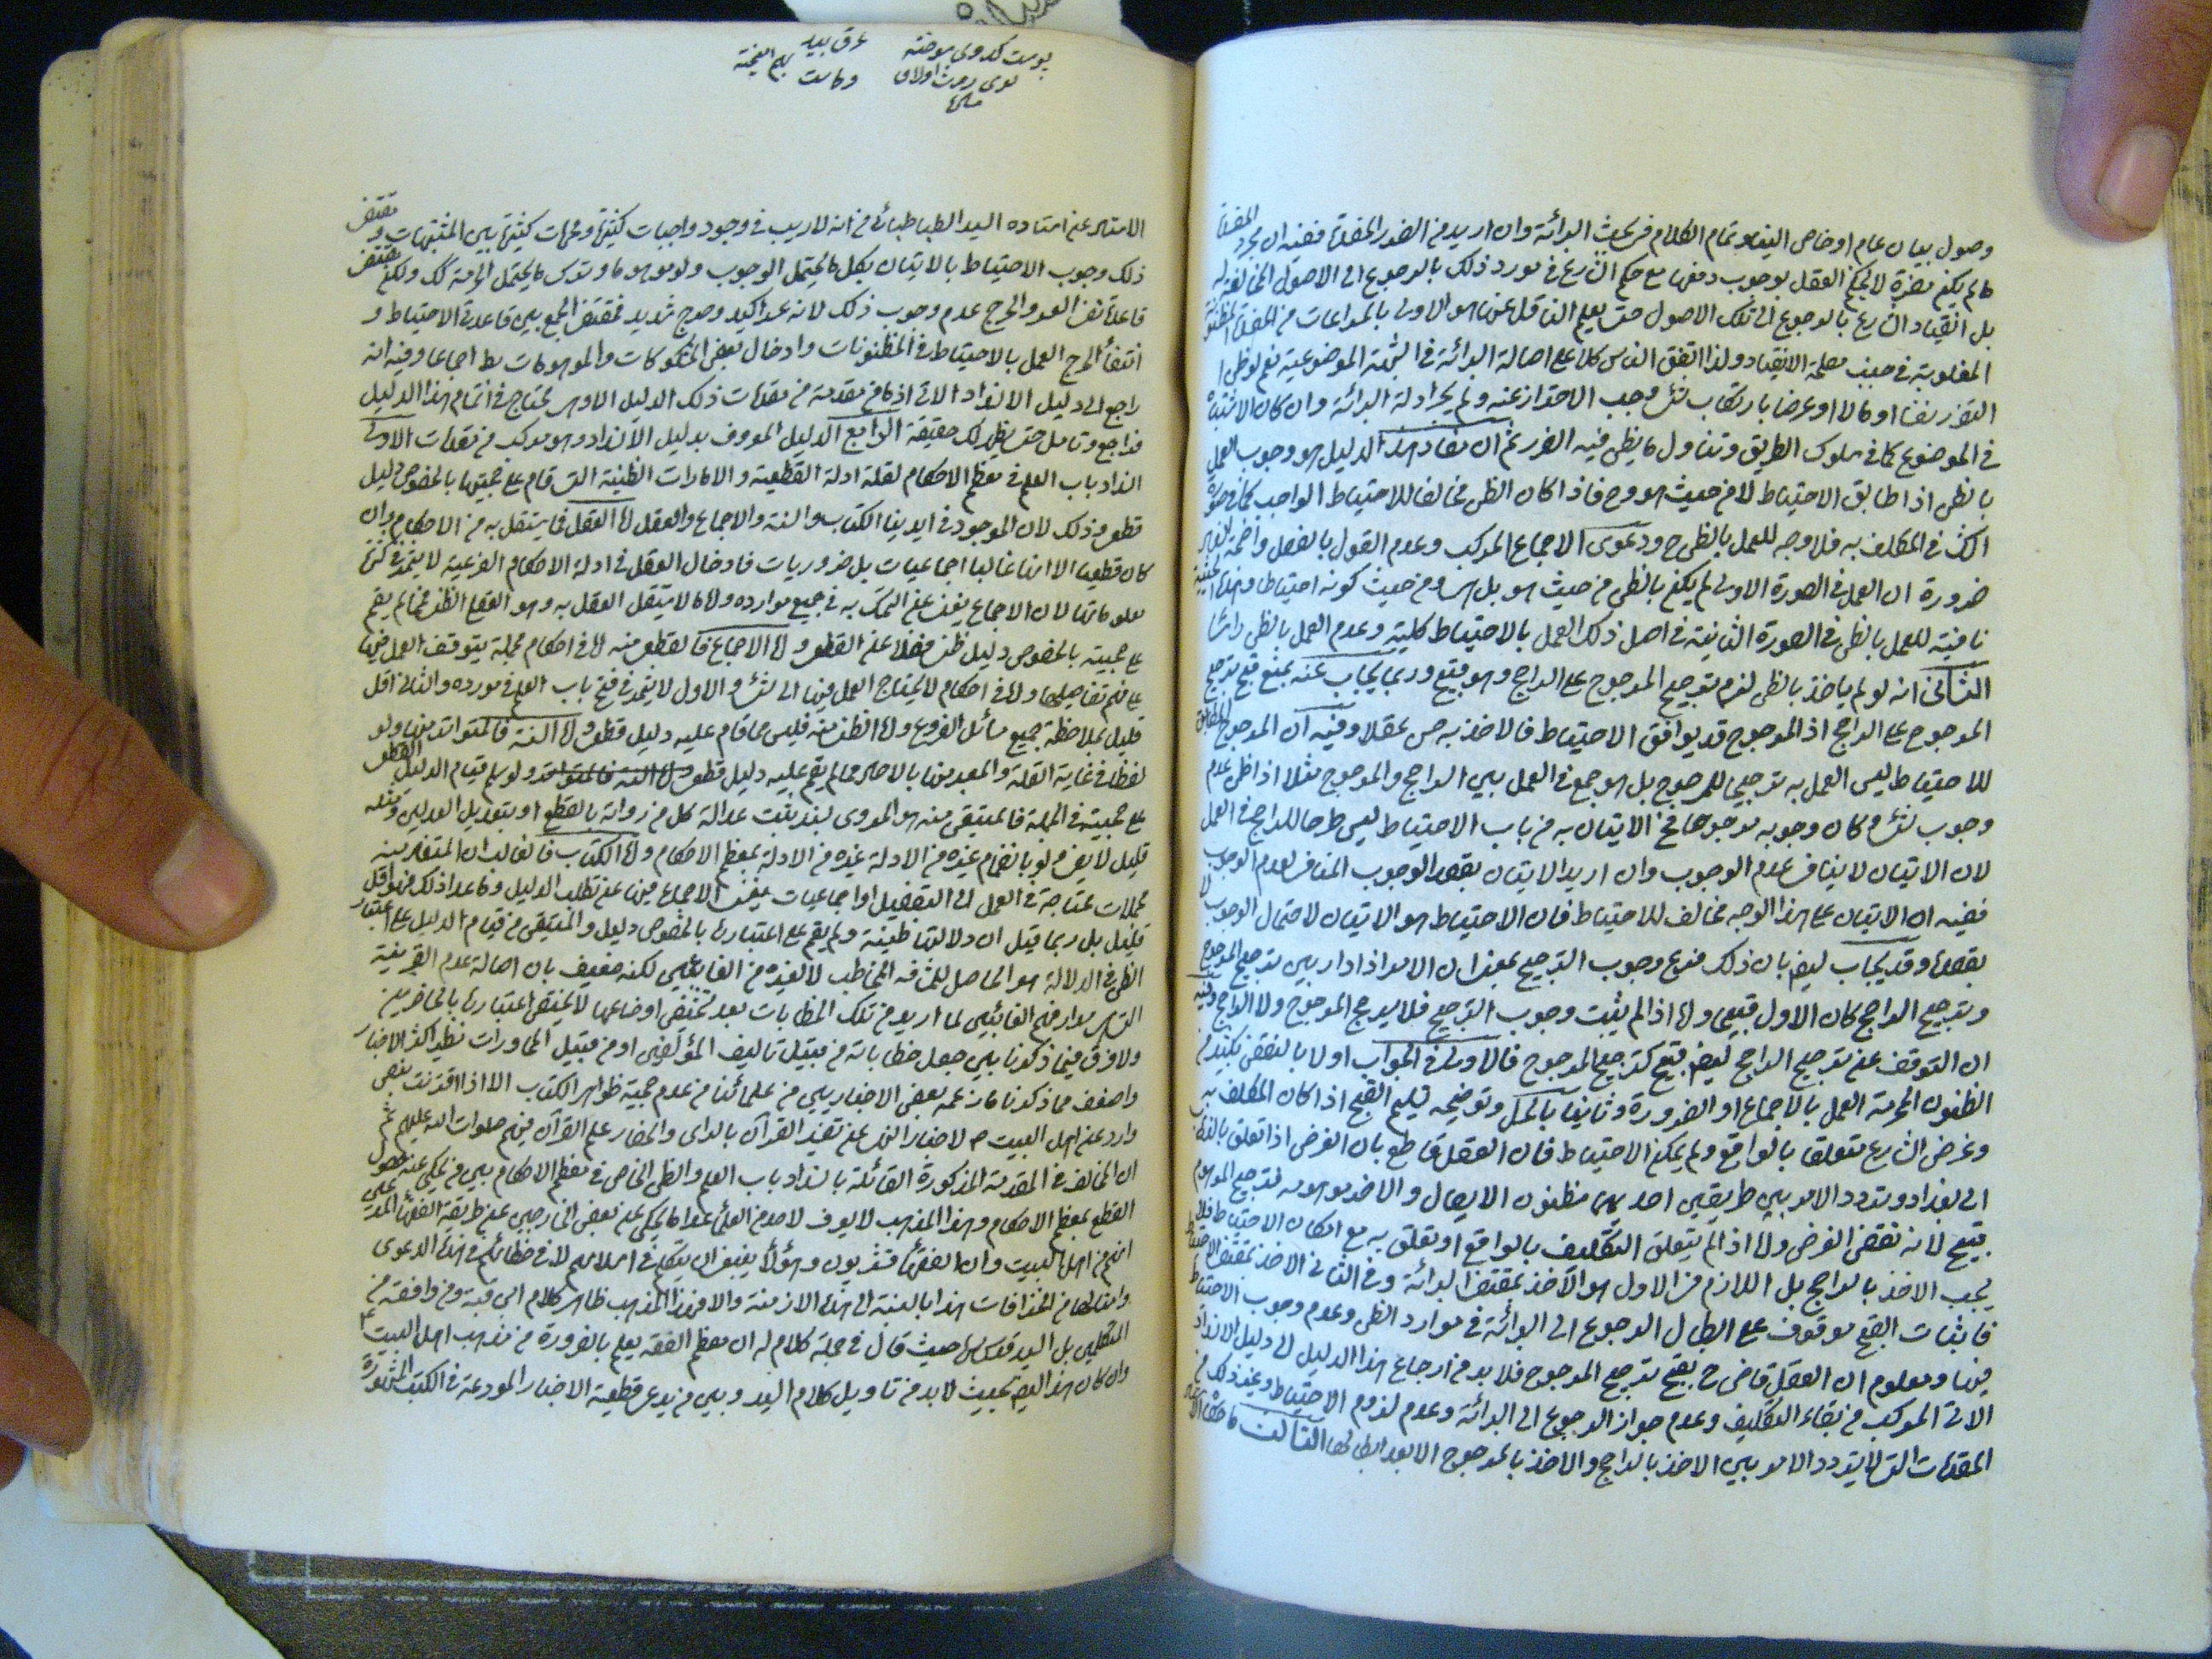 وصول بيان عام او خاص اليه وتمام الكلام في بحث البرائة وان اريد من الضرر المفسدة ففيه ان مجرد المفسدة
ما لم يكن مضرة لا يحكم العقل بوجوب دفعها مع حكم الشارع في مورد ذلك بالرجوع الى الاصول المخالفة له
بل انقياد الشارع بالرجوع الى تلك الاصول حتى يعلم الناقل عنها هو الاولى بالمراعات من المفسدة المظنونة
المغلوبة في جنب مصلحة الانقياد ولذا اتفق الناس كلا على اصالة البرائة في الشبهة الموضوعية نعم لو ظن ا
التضرر نفسا او مالا او عرضا بارتكاب شئ وجب الاحتراز عنه ولم يجر ادلة البرائة وان كان الاشتباه
في الموضوع كما في سلوك الطريق وتناول ما يظن فيه الضرر ثم ان مفاد هذا الدليل هو وجوب العمل
بالظن اذا طابق الاحتياط لا من حيث هو وح فاذا كان الظن مخالفا للاحتياط الواجب كما في صورة
الشك في المكلف به فلا وجه للعمل بالظن ح ودعوى الاجماع المركب وعدم القول بالفصل واضحة الفساد
ضرورة ان العمل في الصورة الاولى لم يكن بالظن من حيث هو بل هو من حيث كونه احتياطا وهذه الحيثية
نافية للعمل بالظن في الصورة الثانية في اصل ذلك العمل بالاحتياط كلية وعدم العمل بالظن راسا
الثاني انه لو لم ياخذ بالظن لزم ترجيح المرجوح على الراجح وهو قبيح وربما يجاب عنه بمنع قبح ترجيح
المرجوح على الراجح اذ المرجوح قد يوافق الاحتياط فالاخذ به حسن عقلا وفيه ان المرجوح المطابق
للاحتياط ليس العمل به ترجيحا للمرجوح بل هو جمع في العمل بين الراجح والمرجوح مثلا اذا ظن عدم
وجوب شئ وكان وجوبه مرجوحا فح الاتيان به من باب الاحتياط ليس طرحا للراجح في العمل
لان الاتيان لا ينافى عدم الوجوب وان اريد الاتيان بقصد الوجوب المنافي لعدم الوجوب
ففيه ان الاتيان على هذا الوجه مخالف للاحتياط فان الاحتياط هو الاتيان لاحتمال الوجوب لا
بقصده وقد يجاب ايض بان ذلك فرع وجوب الترجيح بمعنى ان الامر اذا دار بين ترجيح المرجوح
وترجيح الراجح كان الاول قبيحا واما اذا لم يثبت وجوب الترجيح فلا يرجح المرجوح ولا الراجح وفيه
ان التوقف عن ترجيح الراجح ايض قبيح كترجيح المرجوح فالاولى في الجواب اولا بالنقض بكثير من
الظنون المحرمة العمل بالاجماع او الضرورة وثانيا بالحل وتوضيحه تسليم القبح اذا كان المكلف به
وغرض الشارع متعلقا بالواقع ولم يمكن الاحتياط فان العقل قاطع بان الغرض اذا تعلق بالذهاب
الى بغداد وتردد الامر بين طريقين احدهما مظنون الايصال والاخر موهومه فترجيح الموهوم
قبيح لانه نقض الغرض واما اذا لم يتعلق التكليف بالواقع او تعلق به مع امكان الاحتياط فلا
يجب الاخذ بالراجح بل اللازم في الاول هو الاخذ بمقتضى البرائة وفي الثاني الاخذ بمقتضى الاحتياط
فاثبات القبح موقوف على ابطال الرجوع الى البرائة في موارد الظن وعدم وجوب الاحتياط
فيها ومعلوم ان العقل قاض ح بقبح ترجيح المرجوح فلا بد من ارجاع هذا الدليل الى دليل الانسداد
الاتى المركب من بقاء التكليف وعدم جواز الرجوع الى البرائة وعدم لزوم الاحتياط وغير ذلك من
المقدمات التي لا يتردد الامر بين الاخذ بالراجح والاخذ بالمرجوح الا بعد ابطالها الثالث ما حكاه الاستاد
عرق بيد
وكاست
الاستاد عن استاده السيد الطباطبائى من انه لا ريب في وجود واجبات كثيرة ومحرمات كثيرة بين المشتبهات ومقتضى
ذلك وجوب الاحتياط بالاتيان بكل ما يحتمل الوجوب ولو موهوما وترك ما يحتمل الحرمة كك ولكن مقتضى
قاعدة نفى العسر والحرج عدم وجوب ذلك لانه عسر اكيد وحرج شديد فمقتضى الجمع بين قاعدتى الاحتياط و
انتفاء الحرج العمل بالاحتياط في المظنونات وادخال بعض المشكوكات والموهومات بط اجماعا وفيه انه
راجع الى دليل الانسداد الاتى اذ ما من مقدمة من مقدمات ذلك الدليل الا وهى يحتاج في اتمام هذا الدليل
فراجع وتامل حتى يظهر لك حقيقة الرابع الدليل المعروف بدليل الانسداد وهو مركب من مقدمات الاولى
انسداد باب العلم في معظم الاحكام لقلة ادلة القطعية والامارات الظنية التي قام على حجيتها بالخصوص دليل
قطعى وذلك لان الموجود في ايدينا الكتاب والسنة والاجماع والعقل اما العقل فما يستقل به من الاحكام وان
كان قطعيا الا انها غالبا اجماعيات بل ضروريات فادخال العقل في ادلة الاحكام الفرعية لا يثمر في كثرة
معلوماتنا لان الاجماع يغنى عن التمسك به في جميع موارده واما ما لا يستقل العقل به وهو العقل الظنى فما لم يقم
على حجيته بالخصوص دليل ظنى فضلا عن القطعى واما الاجماع فالقطعى منه اما في احكام مجملة يتوقف العمل فيها
على علم تفاصيلها واما في احكام لا يحتاج العمل فيها الى شئ والاول لا يثمر في فتح باب العلم في مورده والثانى اقل
قليل بملاحظة جميع مسائل الفروع واما الظنى منه فليس مما قام عليه دليل قطعى واما السنة فالمتواتر منها ولو
لفظا في غاية القلة والمعدود منها بالاحاد مما لم يقم عليه دليل قطعى ولو سلم قيام الدليل القطعى
على حجيته في الجملة فالمتيقن منه هو المروى بسند ثبت عدالة كل من رواته بالقطع او بتعديل العدلين ومثله
قليل لا يفى ولو بانضمام غيره من الادلة غيره من الادلة بمعظم الاحكام واما الكتاب فالغالب ان المستفاد منه
مجملات محتاجة في العمل الى التفصيل او اجماعيات يغنى الاجماع فيها عن تطلب الدليل وما عدا ذلك فهو اقل
قليل بل ربما قيل ان دلالتها ظنية ولم يقم على اعتبارها بالخصوص دليل والمتيقن من قيام الدليل على اعتبار
الظن في الدلالة هو الحاصل للمشافه المخاطب لا لغيره من الغائبين لكنه ضعيف بان اصالة عدم القرينة
التي مدار فهم الغائبين لما اريد من تلك الخطابات بعد تشخيص اوضاعها لا يختص اعتبارها بالحاضرين
ولا فرق فيما ذكرنا بين جعل خطاباته من قبيل تاليف المؤلفين او من قبيل المحاورات نظير اكثر الاخبار
واضعف مما ذكرنا ما زعمه بعض الاخباريين من علمائنا من عدم حجية ظواهر الكتاب الا اذا اقترنت بنص
وارد عن اهل البيت ع لاخبار النهى عن تفسير القرآن بالراى والحصار علم القرآن فيهم صلوات الله عليهم ثم
ان المخالف في المقدمة المذكورة القائلة بانسداد باب العلم والظن الخاص في معظم الاحكام بين من يحكى عنه حصول
القطع بمعظم الاحكام وهذا المذهب لا يعرف لاحد من العلماء عدا ما يحكى عن بعض الخارجين عن طريقة الفقهاء المدعين
انهم من اهل البيت وان الفقهاء قشريون وهؤلاء ينبغى ان يتكلم في اسلامهم لا في خطائهم في هذه الدعوى
وامثالها من الخرافات هذا بالنسبة الى هذه الازمنة والا فهذا المذهب ظاهر كلام ابن قبة ومن وافقه من
المتكلمين بل السيد قدس سره حيث قال في جملة كلام له ان معظم الفقه يعلم بالضرورة من مذهب اهل البيت ع
وان كان هذا ايض بحيث لا بد من تاويل كلام السيد وبين من يدعى قطعية الاخبار المودعة في الكتب المشهورة